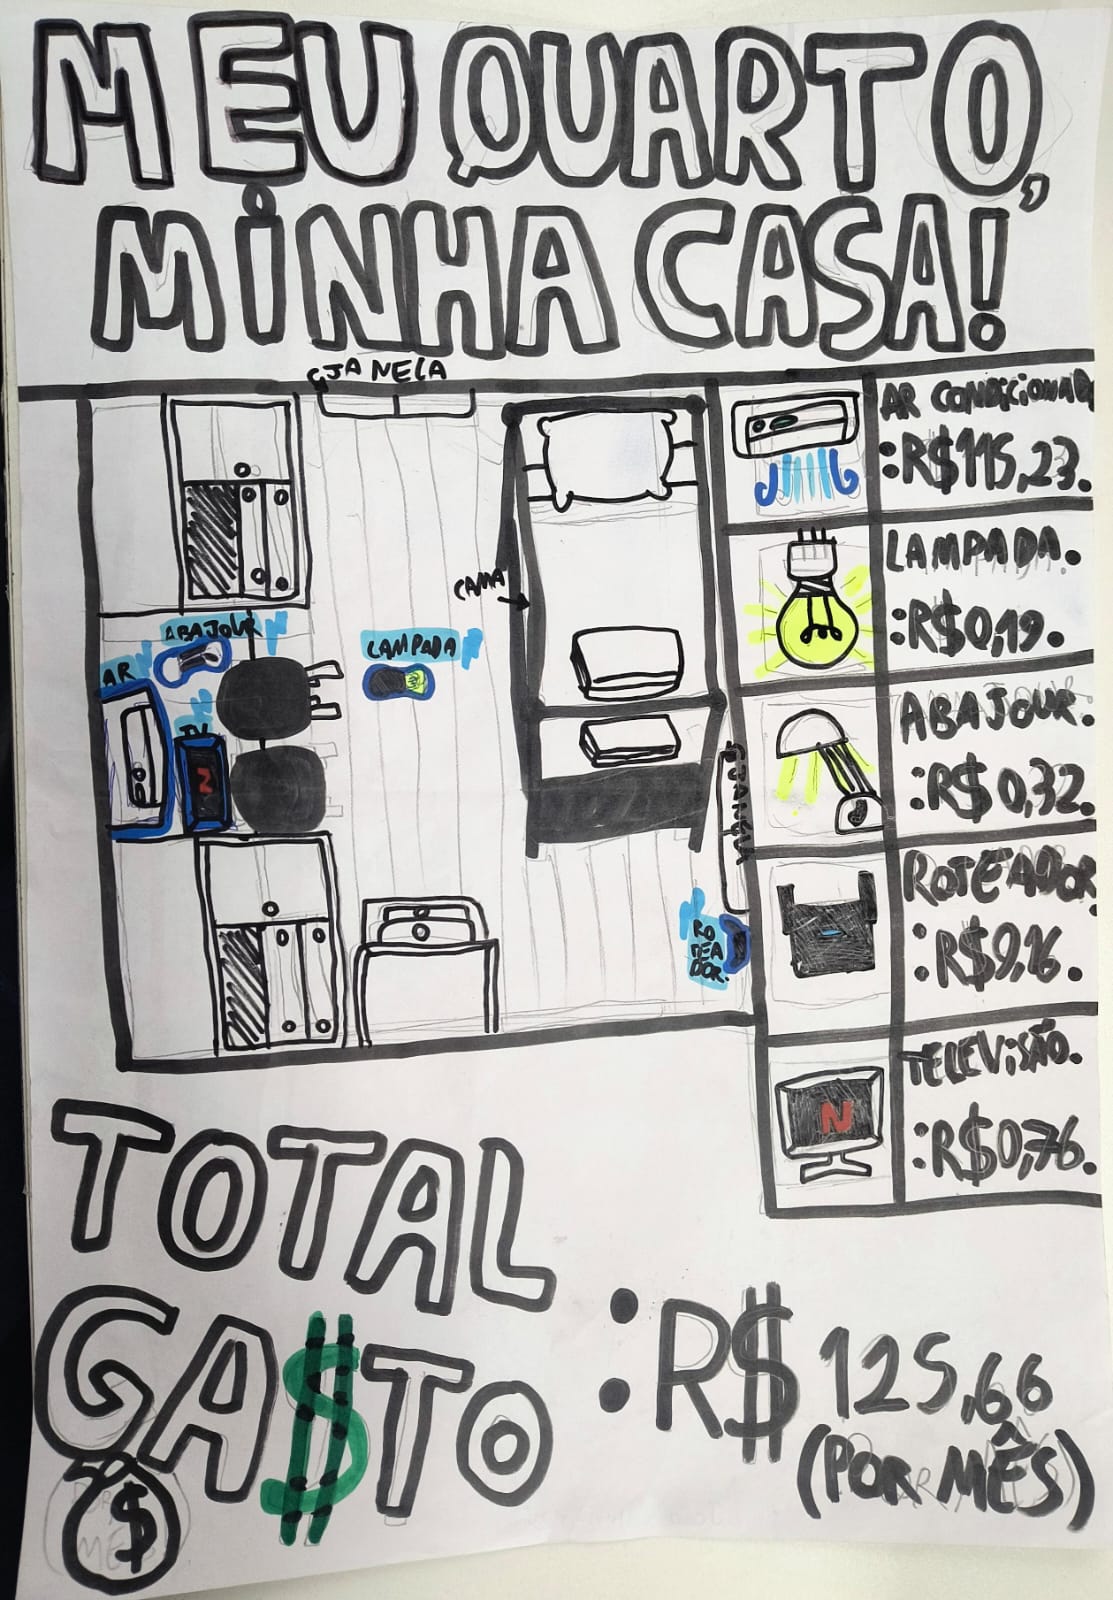 MEU QUARTO,
MINHA CASA!
JANELA
AR CONDICIONADO
:R$115,23.
LAMPADA.
:R$0,19.
CAMA
ABAJOUR
LAMPADA
AR
TV
N
ABAJOUR.
:R$0,32.
JANELA
ROTEADOR.
:R$9,16.
RO
TEA
DOR.
TELEVISÃO.
:R$0,76.
N
TOTAL
GA$TO
:R$ 125,66
(POR MÊS)
$